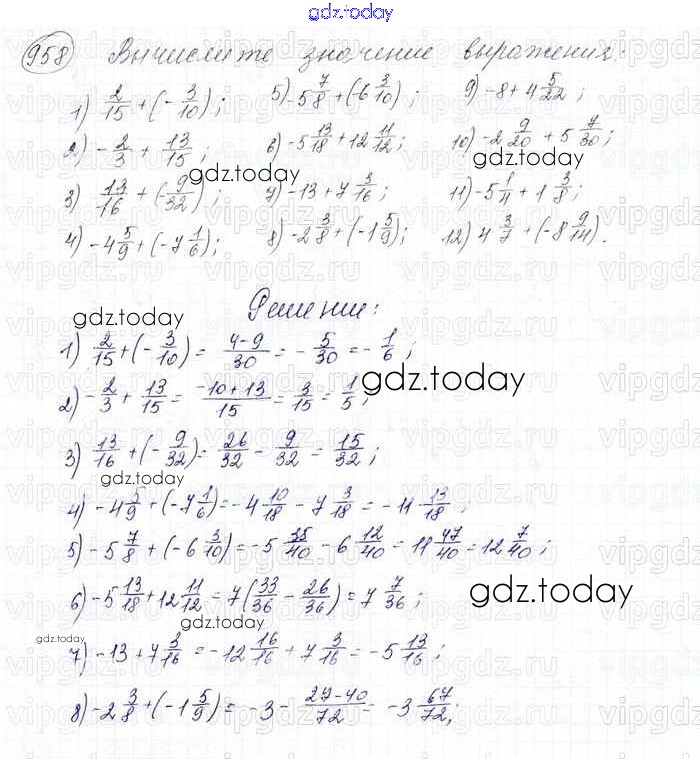 gdz.today
958 Вычислите значение выражения:
1) 2/15 + (- 3/10); 5) -5 7/8 + (-6 3/10); 9) -8 + 4 5/22;
2) - 2/3 + 13/15; 6) -5 13/18 + 12 11/12; 10) -2 9/20 + 5 7/30;
gdz.today
gdz.today
3) 13/16 + (- 9/32); 7) -13 + 7 3/16; 11) -5 1/4 + 1 3/8;
gdz.today
4) -4 5/9 + (-7 1/6); 8) -2 3/8 + (-1 5/9); 12) 4 3/7 + (-8 9/14).
Решение:
gdz.today
1) 2/15 + (- 3/10) = (4-9)/30 = - 5/30 = - 1/6;
gdz.today
2) - 2/3 + 13/15 = (-10+13)/15 = 3/15 = 1/5;
3) 13/16 + (- 9/32) = 26/32 - 9/32 = 15/32;
gdz.today
4) -4 5/9 + (-7 1/6) = -4 10/18 - 7 3/18 = -11 13/18;
5) -5 7/8 + (-6 3/10) = -5 35/40 - 6 12/40 = 11 47/40 = 12 7/40;
6) -5 13/18 + 12 11/12 = 7 (33/36 - 26/36) = 7 7/36;
gdz.today
gdz.today
gdz.today
7) -13 + 7 3/16 = -12 16/16 + 7 3/16 = -5 13/16;
8) -2 3/8 + (-1 5/9) = -3 - (27-40)/72 = -3 67/72;